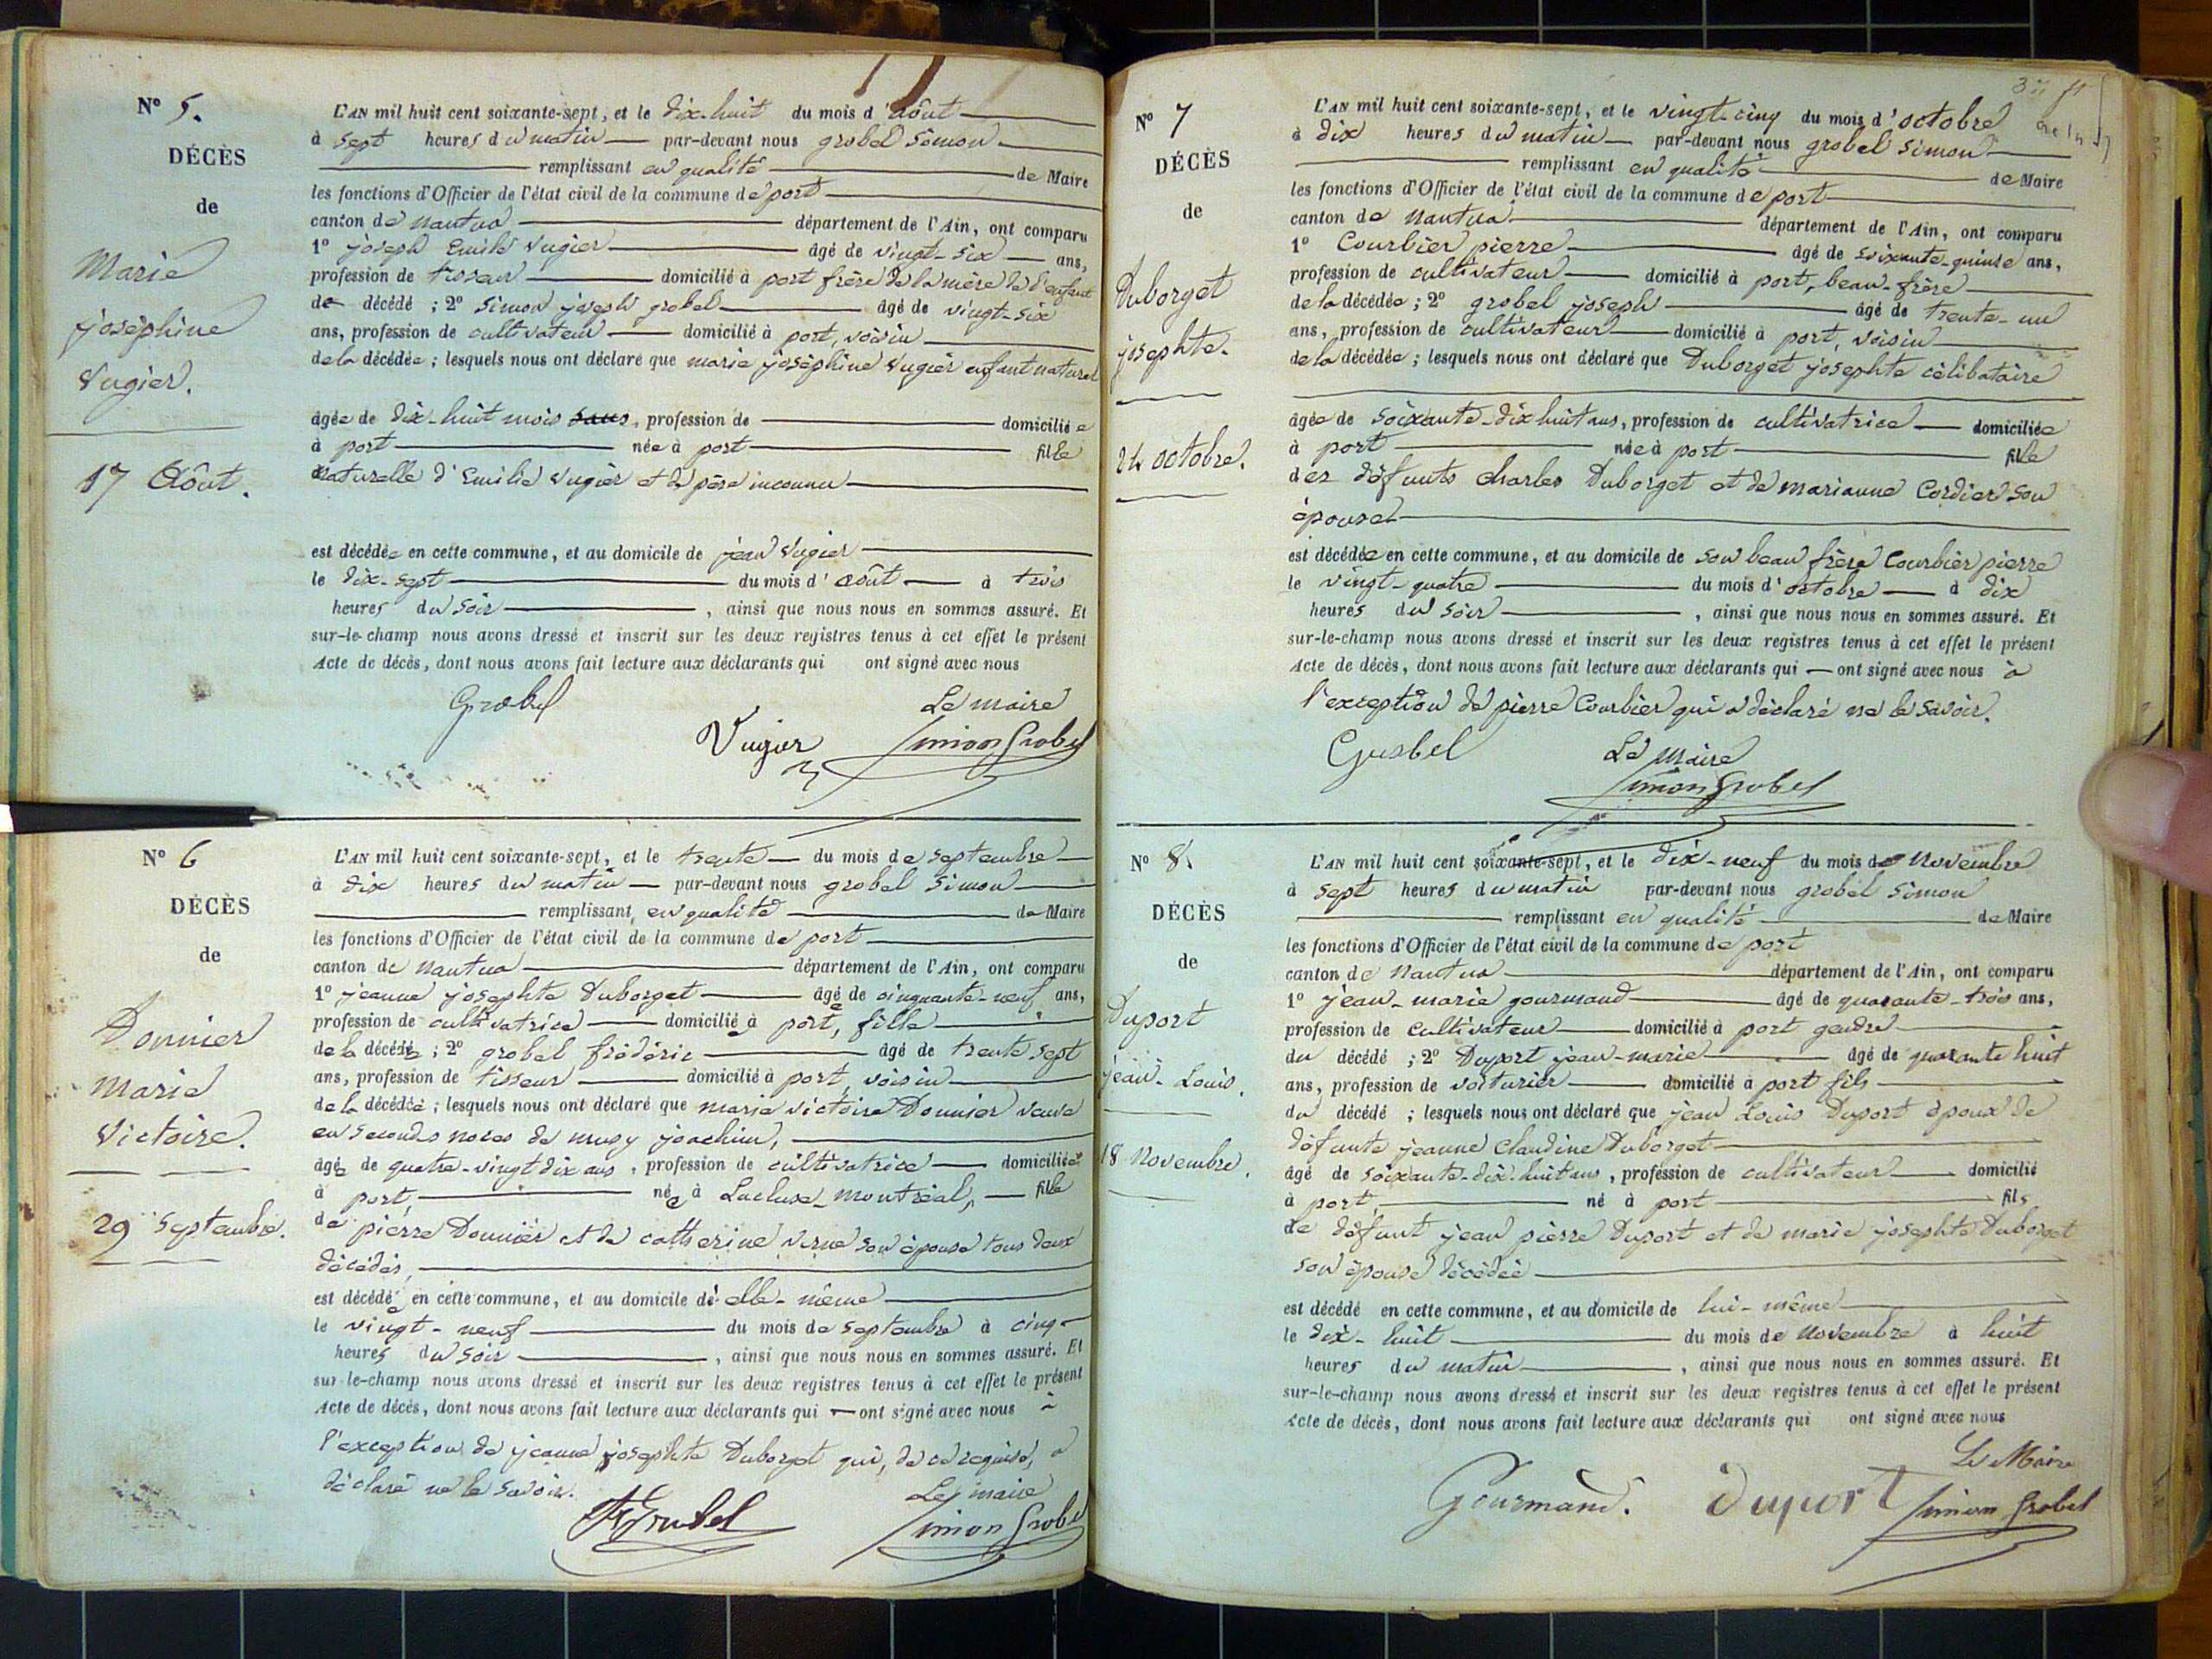 N° 5.
DÉCÈS
de
Marie
joséphine
Vugier.
17 Août.
L'AN mil huit cent soixante-sept, et le dix-huit du mois d'Août
à sept heures du matin par-devant nous grobel Simon
remplissant en qualité de Maire
les fonctions d'Officier de l'état civil de la commune de port
canton de nantua département de l'Ain, ont comparu
1° joseph Emile Vugier âgé de vingt-six ans,
profession de domicilié à port frère de la mère de l'enfant
de décédé ; 2° Simon joseph grobel âgé de vingt-six
ans, profession de cultivateur domicilié à port, voisin
de la décédée ; lesquels nous ont déclaré que marie joséphine Vugier enfant naturel
âgée de dix-huit mois, profession de domiciliée
à port née à port fille
naturelle d'Emilie Vugier et de père inconnu
est décédée en cette commune, et au domicile de jean Vugier
le dix-sept du mois d'août à trois
heures du soir, ainsi que nous nous en sommes assuré. Et
sur-le-champ nous avons dressé et inscrit sur les deux registres tenus à cet effet le présent
Acte de décès, dont nous avons fait lecture aux déclarants qui ont signé avec nous
Grobel Le maire
Vugier Simon Grobel
N° 6
DÉCÈS
de
Donnier
Marie
Victoire.
29 Septembre.
L'AN mil huit cent soixante-sept, et le trente du mois de septembre
à dix heures du matin par-devant nous grobel Simon
remplissant en qualité de Maire
les fonctions d'Officier de l'état civil de la commune de port
canton de nantua département de l'Ain, ont comparu
1° jeanne josephte Duborget âgée de cinquante-neuf ans,
profession de cultivatrice domiciliée à port, fille
de la décédée ; 2° grobel frédéric âgé de trente sept
ans, profession de tisseur domicilié à port, voisin
de la décédée ; lesquels nous ont déclaré que marie victoire Donnier veuve
en seconds noces de musy joachim,
âgée de quatre-vingt dix ans, profession de cultivatrice domiciliée
à port, née à Lacluse-montréal, fille
de pierre Donnier et de catherine verne son épouse tous deux
décédés,
est décédée en cette commune, et au domicile d'elle-même
le vingt-neuf du mois de septembre à cinq
heures du soir, ainsi que nous nous en sommes assuré. Et
sur-le-champ nous avons dressé et inscrit sur les deux registres tenus à cet effet le présent
Acte de décès, dont nous avons fait lecture aux déclarants qui ont signé avec nous à
l'exception de jeanne josephte Duborget qui, de ce requise, a
déclaré ne le savoir. Le maire
Grobel Simon Grobel
N° 7
DÉCÈS
de
Duborget
josephte.
24 octobre.
L'AN mil huit cent soixante-sept, et le vingt-cinq du mois d'octobre
à dix heures du matin par-devant nous grobel Simon
remplissant en qualité de Maire
les fonctions d'Officier de l'état civil de la commune de port
canton de Nantua département de l'Ain, ont comparu
1° Courbier pierre âgé de soixante-quinze ans,
profession de cultivateur domicilié à port, beau-frère
de la décédée ; 2° grobel joseph âgé de trente-un
ans, profession de cultivateur domicilié à port, voisin
de la décédée ; lesquels nous ont déclaré que Duborget josephte célibataire
âgée de soixante-dix huit ans, profession de cultivatrice domiciliée
à port née à port fille
des défunts charles Duborget et de marianne Cordier son
épouse
est décédée en cette commune, et au domicile de son beau frère Courbier pierre
le vingt-quatre du mois d'octobre à dix
heures du soir, ainsi que nous nous en sommes assuré. Et
sur-le-champ nous avons dressé et inscrit sur les deux registres tenus à cet effet le présent
Acte de décès, dont nous avons fait lecture aux déclarants qui ont signé avec nous à
l'exception de pierre Courbier qui a déclaré ne le savoir.
Grobel Le Maire
Simon Grobel
N° 8.
DÉCÈS
de
Duport
jean-Louis.
18 Novembre.
L'AN mil huit cent soixante-sept, et le dix-neuf du mois de Novembre
à sept heures du matin par-devant nous grobel Simon
remplissant en qualité de Maire
les fonctions d'Officier de l'état civil de la commune de port
canton de Nantua département de l'Ain, ont comparu
1° jean-marie gourmand âgé de quarante-trois ans,
profession de cultivateur domicilié à port gendre
du décédé ; 2° Duport jean-marie âgé de quarante huit
ans, profession de voiturier domicilié à port fils
du décédé ; lesquels nous ont déclaré que jean Louis Duport époux de
défunte jeanne Claudine Duborget
âgé de soixante-dix-huit ans, profession de cultivateur domicilié
à port, né à port fils
de défunt jean pierre Duport et de marie josephte Duborget
son épouse décédée
est décédé en cette commune, et au domicile de lui-même
le dix-huit du mois de Novembre à huit
heures du matin, ainsi que nous nous en sommes assuré. Et
sur-le-champ nous avons dressé et inscrit sur les deux registres tenus à cet effet le présent
Acte de décès, dont nous avons fait lecture aux déclarants qui ont signé avec nous
Le Maire
Gourmand. Duport Simon Grobel